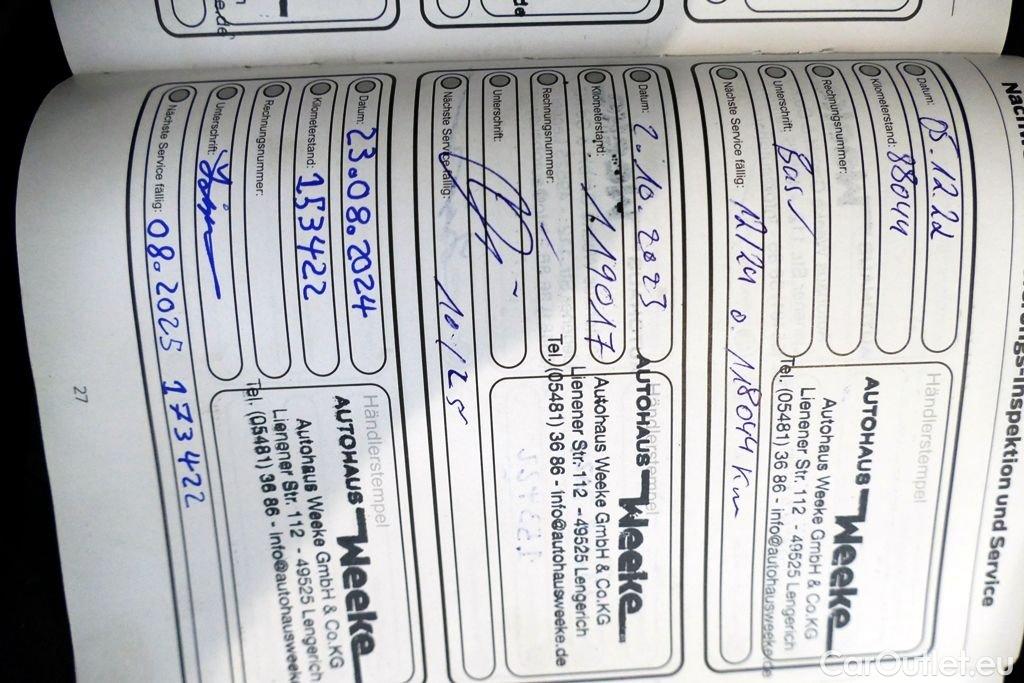 ngs-Inspektion und Service
Datum: 05.12.22
Kilometerstand: 88044
Rechnungsnummer:
Unterschrift:
Nächste Service fällig: 12/24 o. 118044 Km
Händlerstempel
AUTOHAUS Weeke
Autohaus Weeke GmbH & Co.KG
Lienener Str. 112 - 49525 Lengerich
Tel. (05481) 36 86 - info@autohausweeke.de
Datum: 2.10.2023
Kilometerstand: 119017
Rechnungsnummer:
Unterschrift:
Nächste Service fällig: 10/25
Händlerstempel
AUTOHAUS Weeke
Autohaus Weeke GmbH & Co.KG
Lienener Str. 112 - 49525 Lengerich
Tel. (05481) 36 86 - info@autohausweeke.de
Datum: 23.08.2024
Kilometerstand: 153422
Rechnungsnummer:
Unterschrift:
Nächste Service fällig: 08.2025 173422
Händlerstempel
AUTOHAUS Weeke
Autohaus Weeke GmbH & Co.KG
Lienener Str. 112 - 49525 Lengerich
Tel. (05481) 36 86 - info@autohausweeke
27
CarOutlet.eu